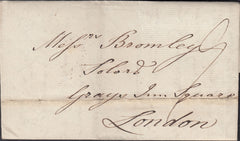 Messrs Bromley
Solrs
Grays Inn Square
London